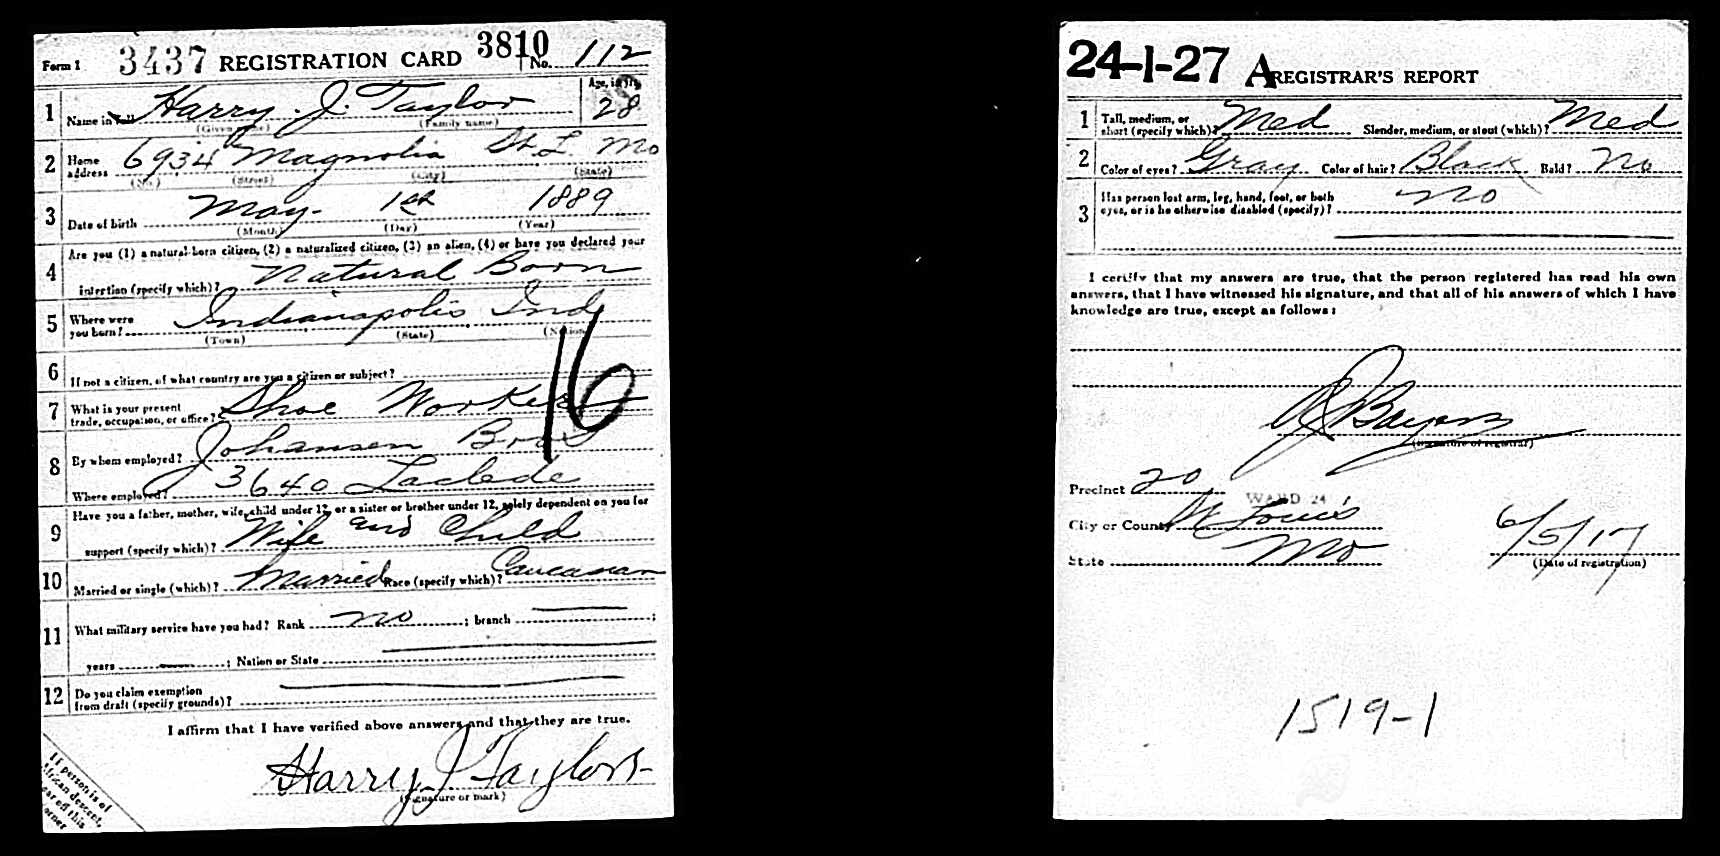 Form 1 3437 REGISTRATION CARD 3810 No. 112
1 Name in full Harry J. Taylor Age, in yrs. 28
(Given name) (Family name)
2 Home address 6934 Magnolia St. L. Mo
(No.) (Street) (City) (State)
3 Date of birth May 1st 1889
(Month) (Day) (Year)
4 Are you (1) a natural-born citizen, (2) a naturalized citizen, (3) an alien, (4) or have you declared your
intention (specify which)? Natural Born
5 Where were you born? Indianapolis Ind
(Town) (State) (Nation)
6 If not a citizen, of what country are you a citizen or subject?
16
7 What is your present trade, occupation, or office? Shoe Worker
8 By whom employed? Johansen Bros
Where employed? 3640 Laclede
9 Have you a father, mother, wife, child under 12, or a sister or brother under 12, solely dependent on you for
support (specify which)? Wife and Child
10 Married or single (which)? Married Race (specify which)? Caucasian
11 What military service have you had? Rank no ; branch ;
years ; Nation or State
12 Do you claim exemption
from draft (specify grounds)?
I affirm that I have verified above answers and that they are true.
Harry J Taylor
(Signature or mark)
If person is of
African descent,
tear off this
corner
24-1-27 A REGISTRAR'S REPORT
1 Tall, medium, or short (specify which)? Med Slender, medium, or stout (which)? Med
2 Color of eyes? Gray Color of hair? Black Bald? No
3 Has person lost arm, leg, hand, foot, or both
eyes, or is he otherwise disabled (specify)? no
I certify that my answers are true, that the person registered has read his own
answers, that I have witnessed his signature, and that all of his answers of which I have
knowledge are true, except as follows:
(Signature of registrar)
Precinct 20
WARD 24
City or County St Louis
State Mo 6/5/17
(Date of registration)
1519-1